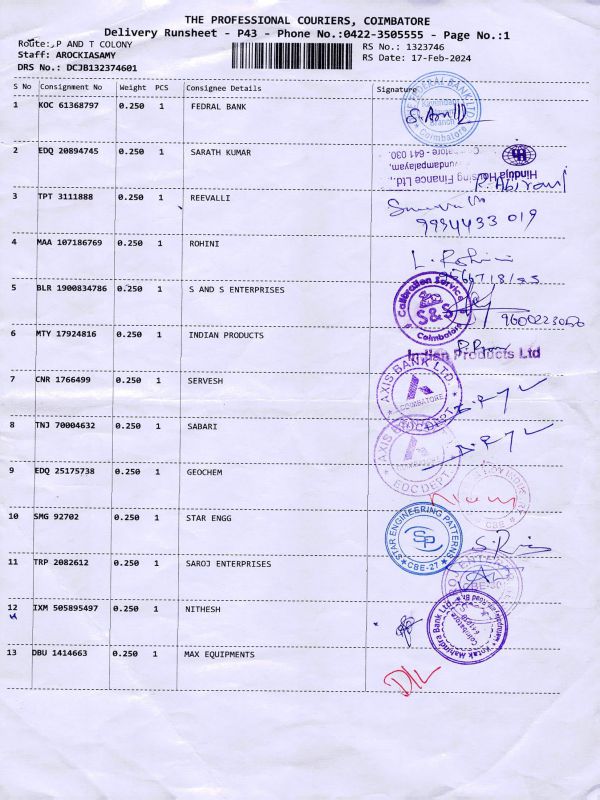 THE PROFESSIONAL COURIERS, COIMBATORE
Delivery Runsheet - P43 - Phone No.:0422-3505555 - Page No.:1
Route: P AND T COLONY
RS No.: 1323746
Staff: AROCKIASAMY
RS Date: 17-Feb-2024
DRS No.: DCJB132374601
S No Consignment No Weight PCS Consignee Details Signature
1 KOC 61368797 0.250 1 FEDRAL BANK
FEDERAL BANK LTD
Coimbatore
2 EDQ 20894745 0.250 1 SARATH KUMAR
Hinduja Housing Finance Ltd.,
3 TPT 3111888 0.250 1 REEVALLI
9994433 019
4 MAA 107186769 0.250 1 ROHINI
L. Rohini
5 BLR 1900834786 0.250 1 S AND S ENTERPRISES
Calibration Service
S&S
Coimbatore
6 MTY 17924816 0.250 1 INDIAN PRODUCTS
Indian Products Ltd
7 CNR 1766499 0.250 1 SERVESH
AXIS BANK LTD.
COIMBATORE
EDC DEPT
8 TNJ 70004632 0.250 1 SABARI
EDC DEPT
9 EDQ 25175738 0.250 1 GEOCHEM
CBE
10 SMG 92702 0.250 1 STAR ENGG
STAR ENGINEERING PATTERNS
SP
CBE-27
11 TRP 2082612 0.250 1 SAROJ ENTERPRISES
12 IXM 505895497 0.250 1 NITHESH
Kotak Mahindra Bank Ltd.
Coimbatore
13 DBU 1414663 0.250 1 MAX EQUIPMENTS